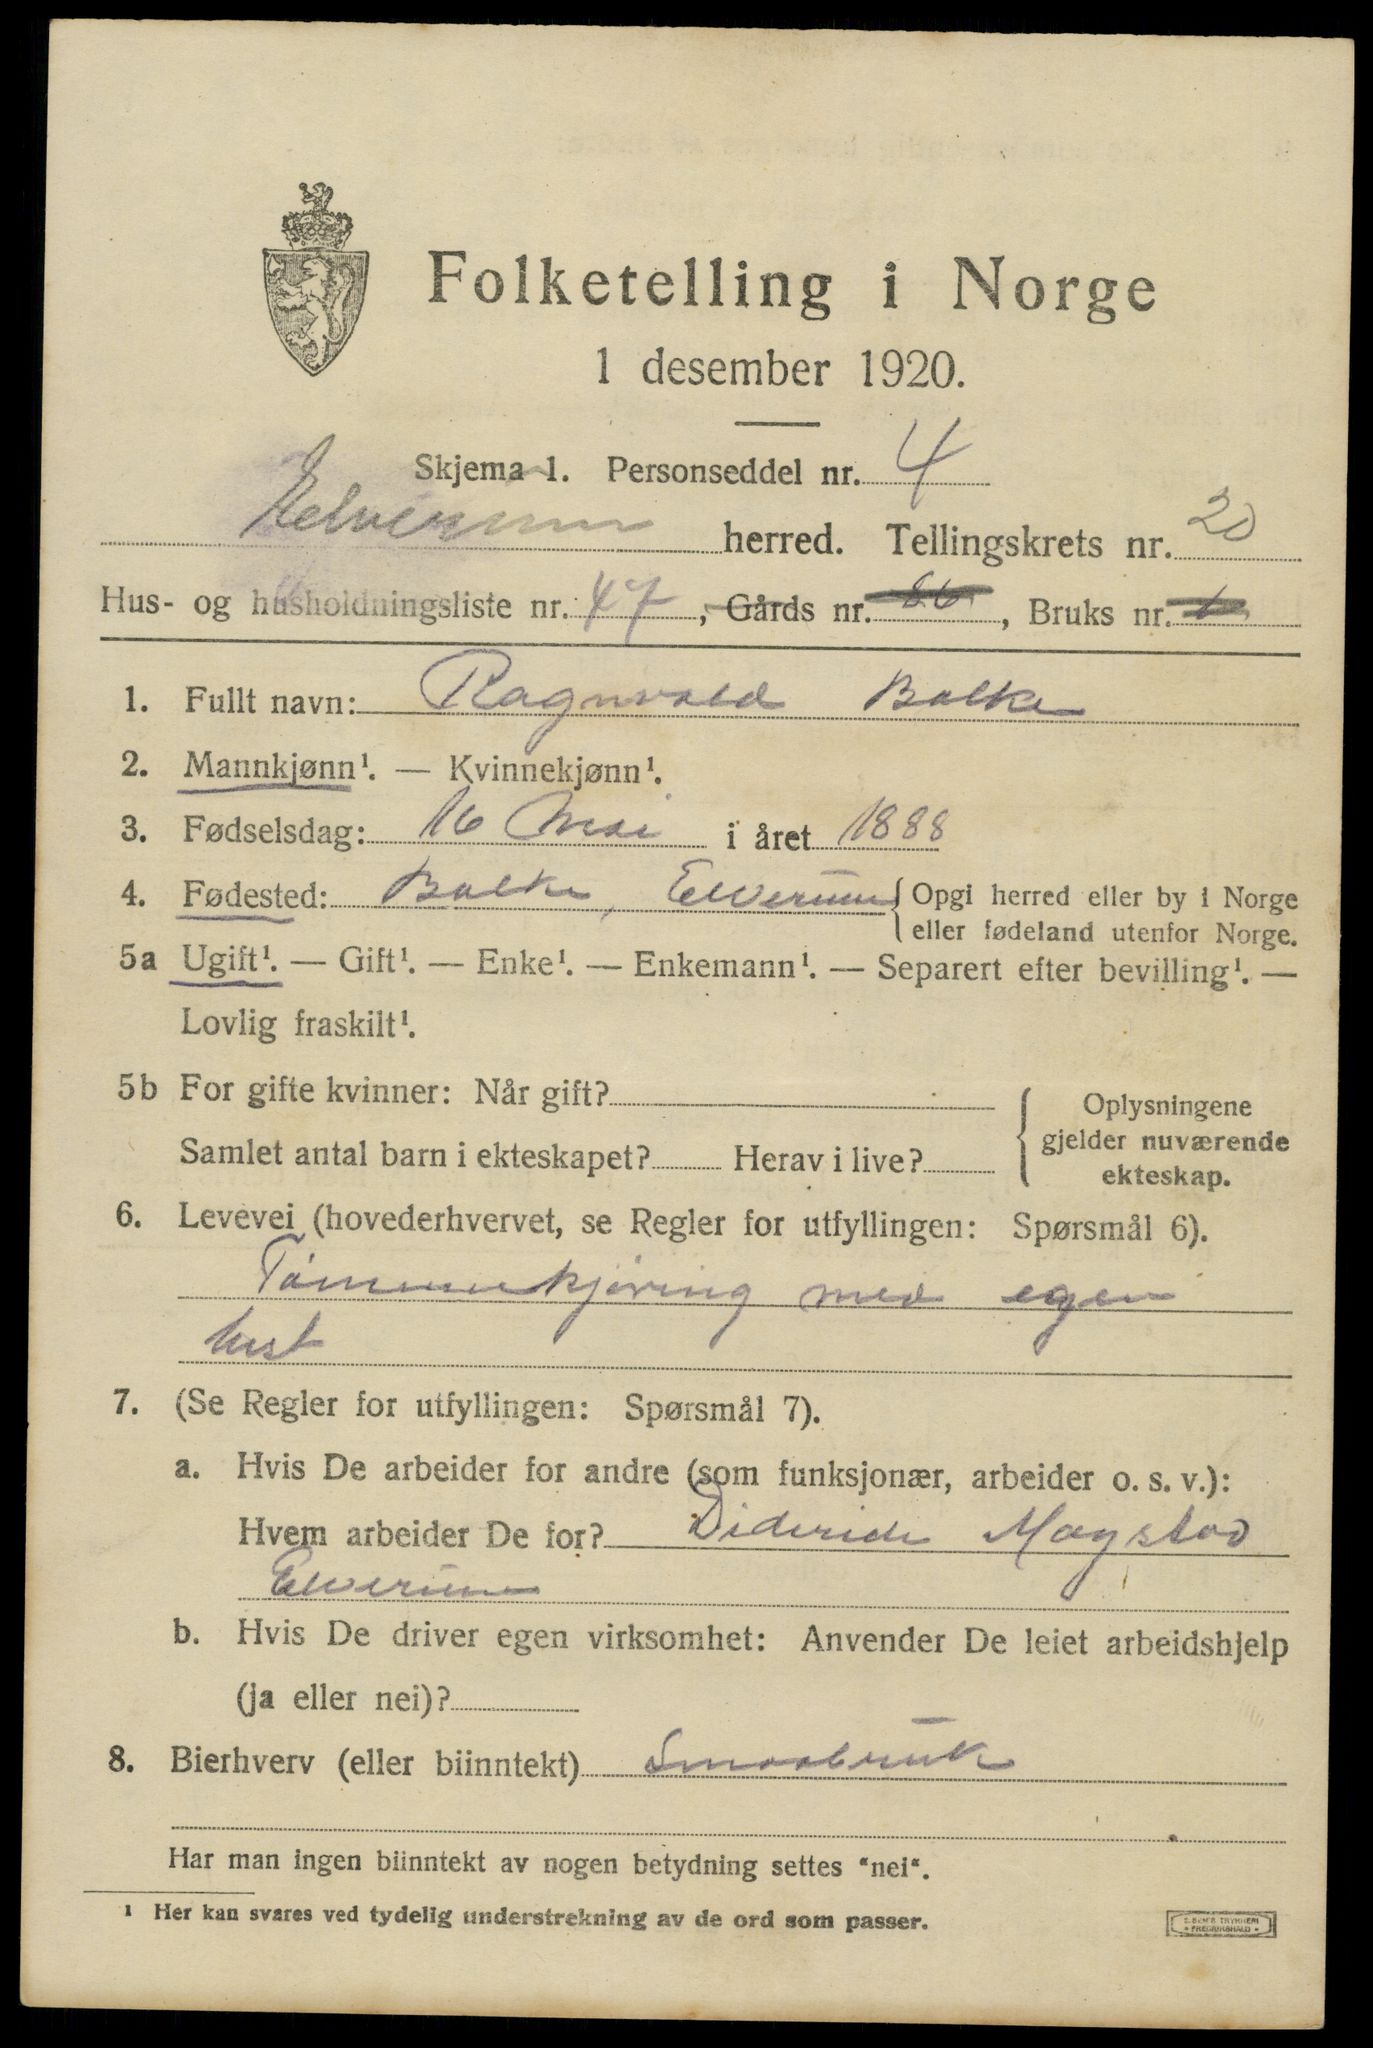 Folketelling i Norge
1 desember 1920.
Skjema 1. Personseddel nr. 4
Elverum herred. Tellingskrets nr. 20
Hus- og husholdningsliste nr. 47, Gårds nr. 86, Bruks nr. 1
1. Fullt navn: Ragnvald Balke
2. Mannkjønn¹. — Kvinnekjønn¹.
3. Fødselsdag: 16 Mai i året 1888
4. Fødested: Balke, Elverum { Opgi herred eller by i Norge
eller fødeland utenfor Norge.
5a Ugift¹. — Gift¹. — Enke¹. — Enkemann¹. — Separert efter bevilling¹. —
Lovlig fraskilt¹.
5b For gifte kvinner: Når gift?
Samlet antal barn i ekteskapet? Herav i live?
{ Oplysningene
gjelder nuværende
ekteskap.
6. Levevei (hovederhvervet, se Regler for utfyllingen: Spørsmål 6).
Tømmerkjøring med egen
hest
7. (Se Regler for utfyllingen: Spørsmål 7).
a. Hvis De arbeider for andre (som funksjonær, arbeider o. s. v.):
Hvem arbeider De for? Diderich Magstad
Elverum
b. Hvis De driver egen virksomhet: Anvender De leiet arbeidshjelp
(ja eller nei)?
8. Bierhverv (eller biinntekt) Smaabruk
Har man ingen biinntekt av nogen betydning settes "nei".
¹ Her kan svares ved tydelig understrekning av de ord som passer.
TRYKKERI
FREDRIKSHALD